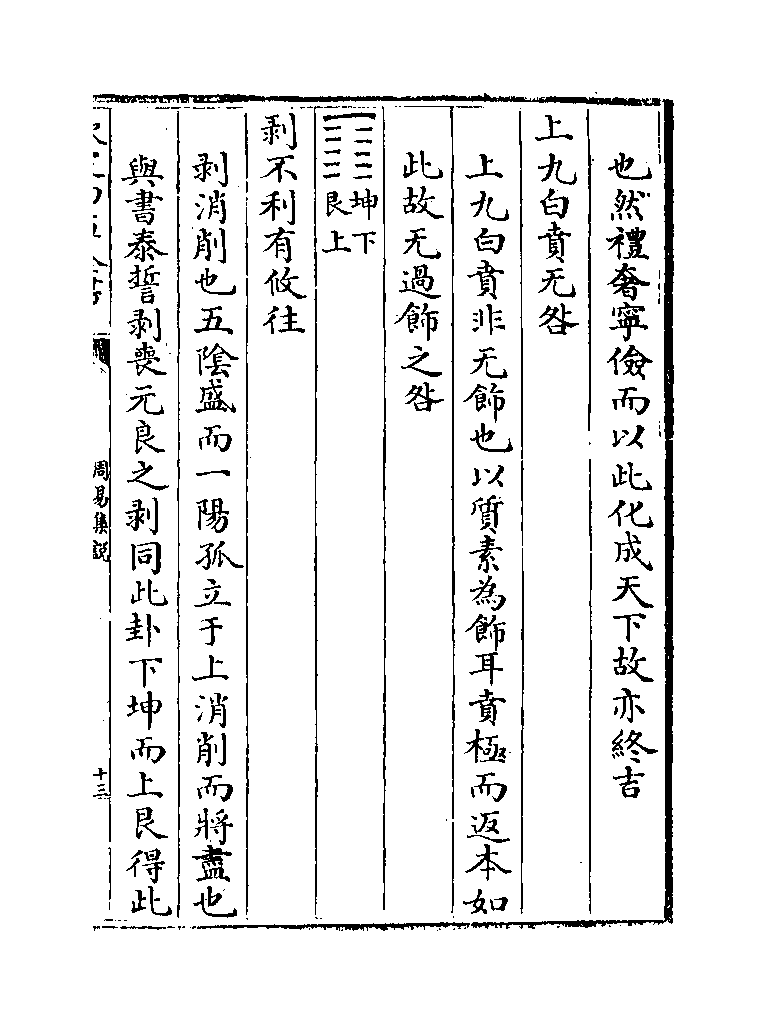 也然禮奢寧儉而以此化成天下故亦終吉
上九白賁无咎
上九白賁非无飾也以質素為飾耳賁極而返本如
此故无過飾之咎
䷖坤下艮上
剥不利有攸往
剥消削也五陰盛而一陽孤立于上消削而將盡也
與書泰誓剥喪元良之剥同此卦下坤而上艮得此
周易集説
十三